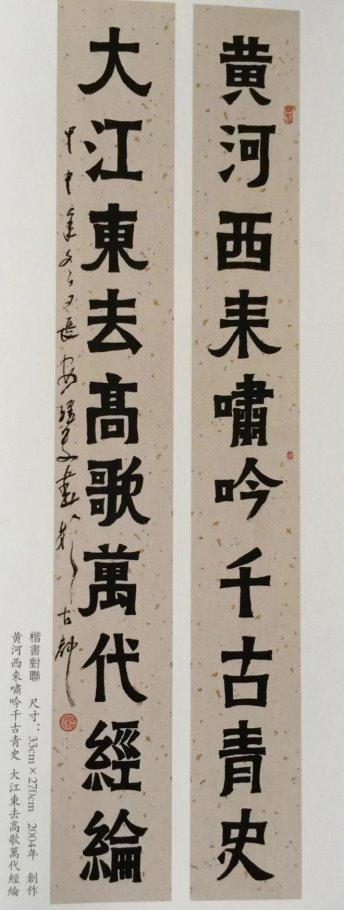 黄河西来嘯吟千古青史
大江東去高歌萬代經綸
甲申年
長安
古
楷書對聯 尺寸：33cm×270cm 2004年 創作
黃河西來嘯吟千古青史 大江東去高歌萬代經綸